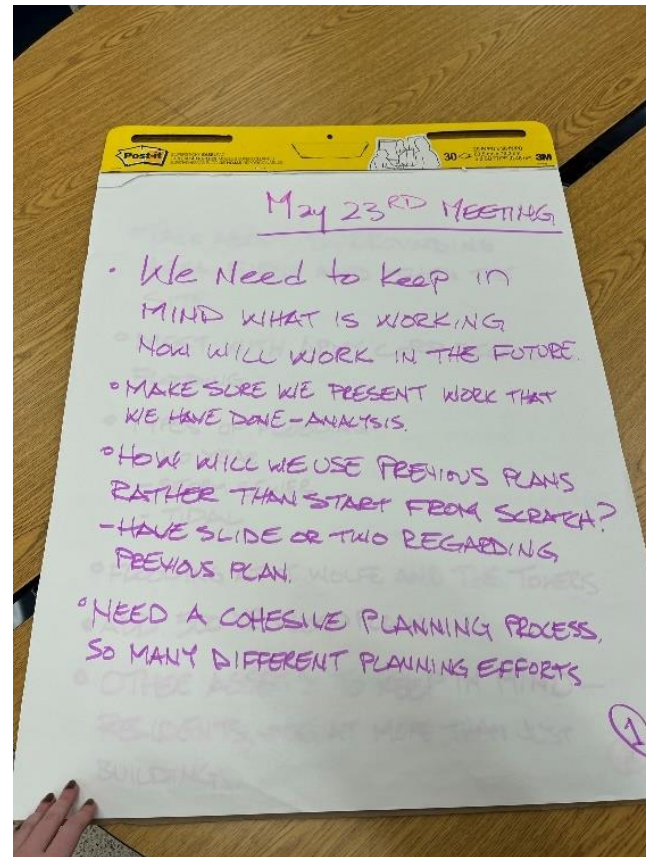 Post-it
30
3M
May 23RD MEETING
• We Need to Keep in
MIND WHAT IS WORKING
NOW WILL WORK IN THE FUTURE.
• MAKE SURE WE PRESENT WORK THAT
WE HAVE DONE - ANALYSIS.
• HOW WILL WE USE PREVIOUS PLANS
RATHER THAN START FROM SCRATCH?
- HAVE SLIDE OR TWO REGARDING
PREVIOUS PLAN.
• NEED A COHESIVE PLANNING PROCESS.
SO MANY DIFFERENT PLANNING EFFORTS
1